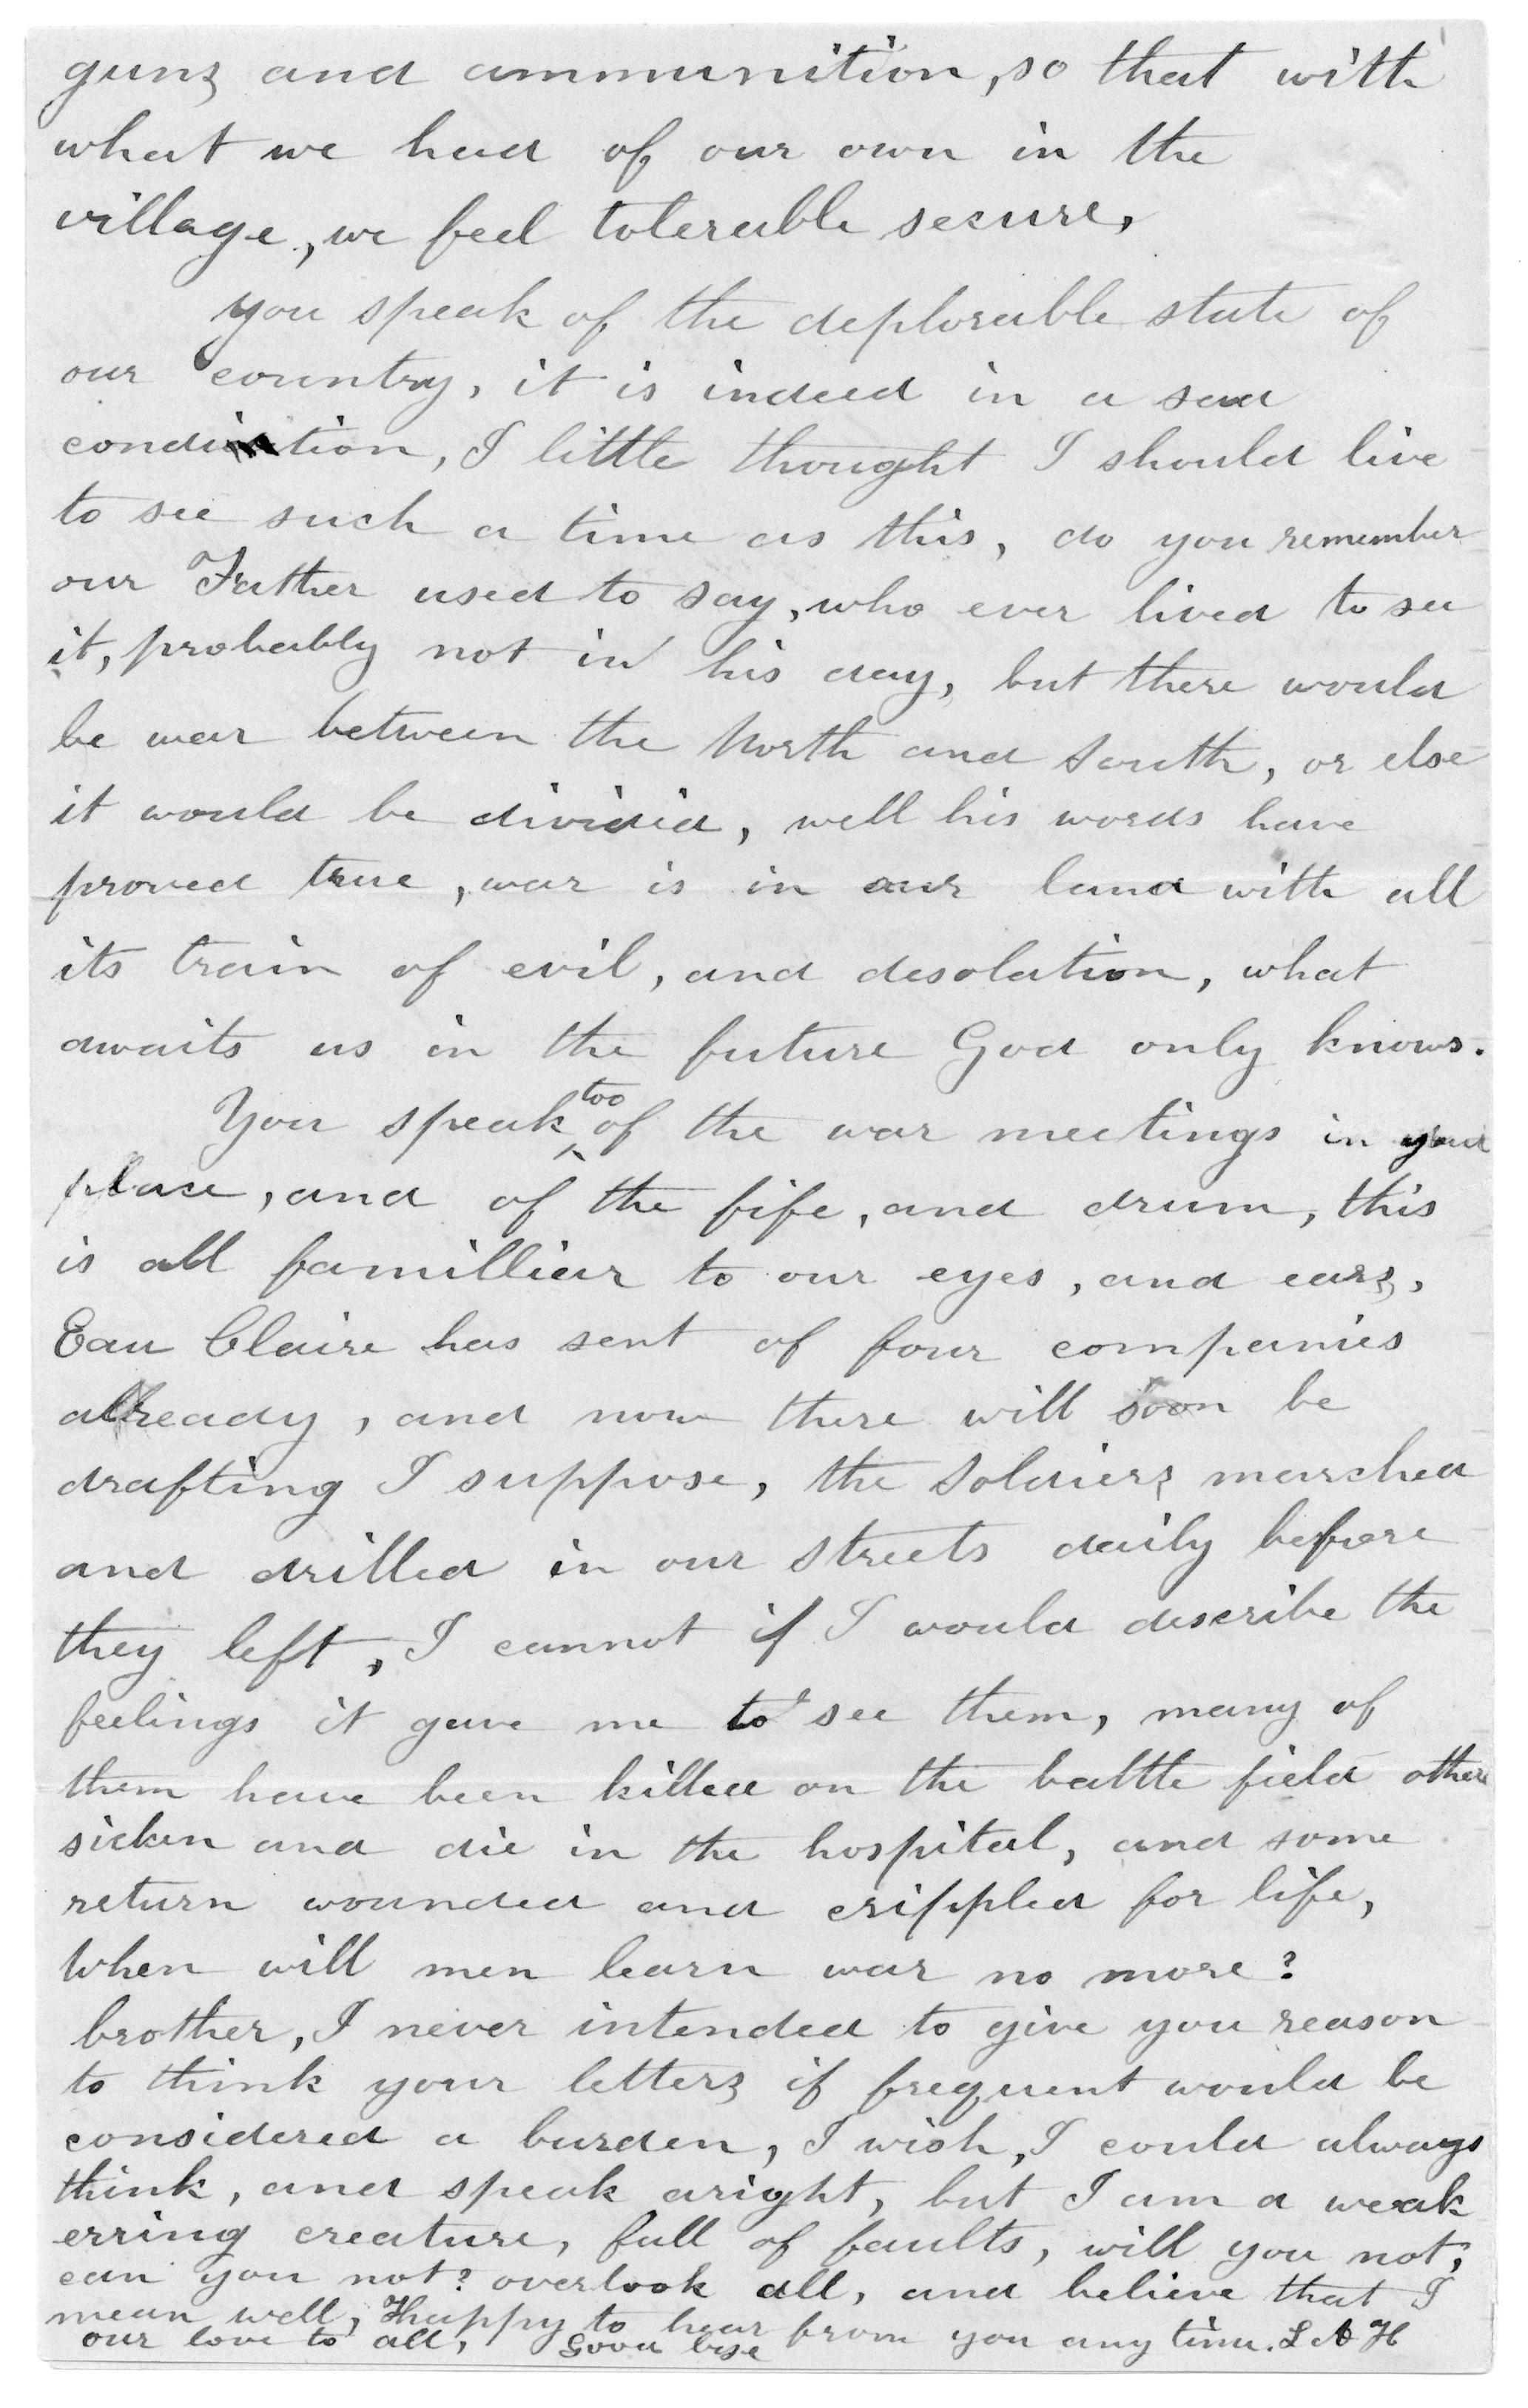 guns and ammunition, so that with
what we had of our own in the
village, we feel tolerable secure,
you speak of the deplorable state of
our country, it is indeed in a sad
condition, I little thought I should live
to see such a time as this, do you remember
our Father used to say, who ever lived to see
it, probably not in his day, but there would
be war between the North and South, or else
it would be divided, well his words have
proved true, war is in our land with all
its train of evil, and desolation, what
awaits us in the future God only knows.
You speak too of the war meetings in your
place, and of the fife, and drum, this
is all familliar to our eyes, and ears,
Eau Claire has sent of four companies
already, and now there will soon be
drafting I suppose, the soldiers marched
and drilled in our streets daily before
they left, I cannot if I would describe the
feelings it gave me to see them, many of
them have been killed on the battle field others
sicken and die in the hospital, and some
return wounded and crippled for life,
When will men learn war no more?
brother, I never intended to give you reason
to think your letters if frequent would be
considered a burden, I wish, I could always
think, and speak aright, but I am a weak
erring creature, full of faults, will you not,
can you not? overlook all, and believe that I
mean well, Happy to hear from you any time. L A H
our love to all, Good bye